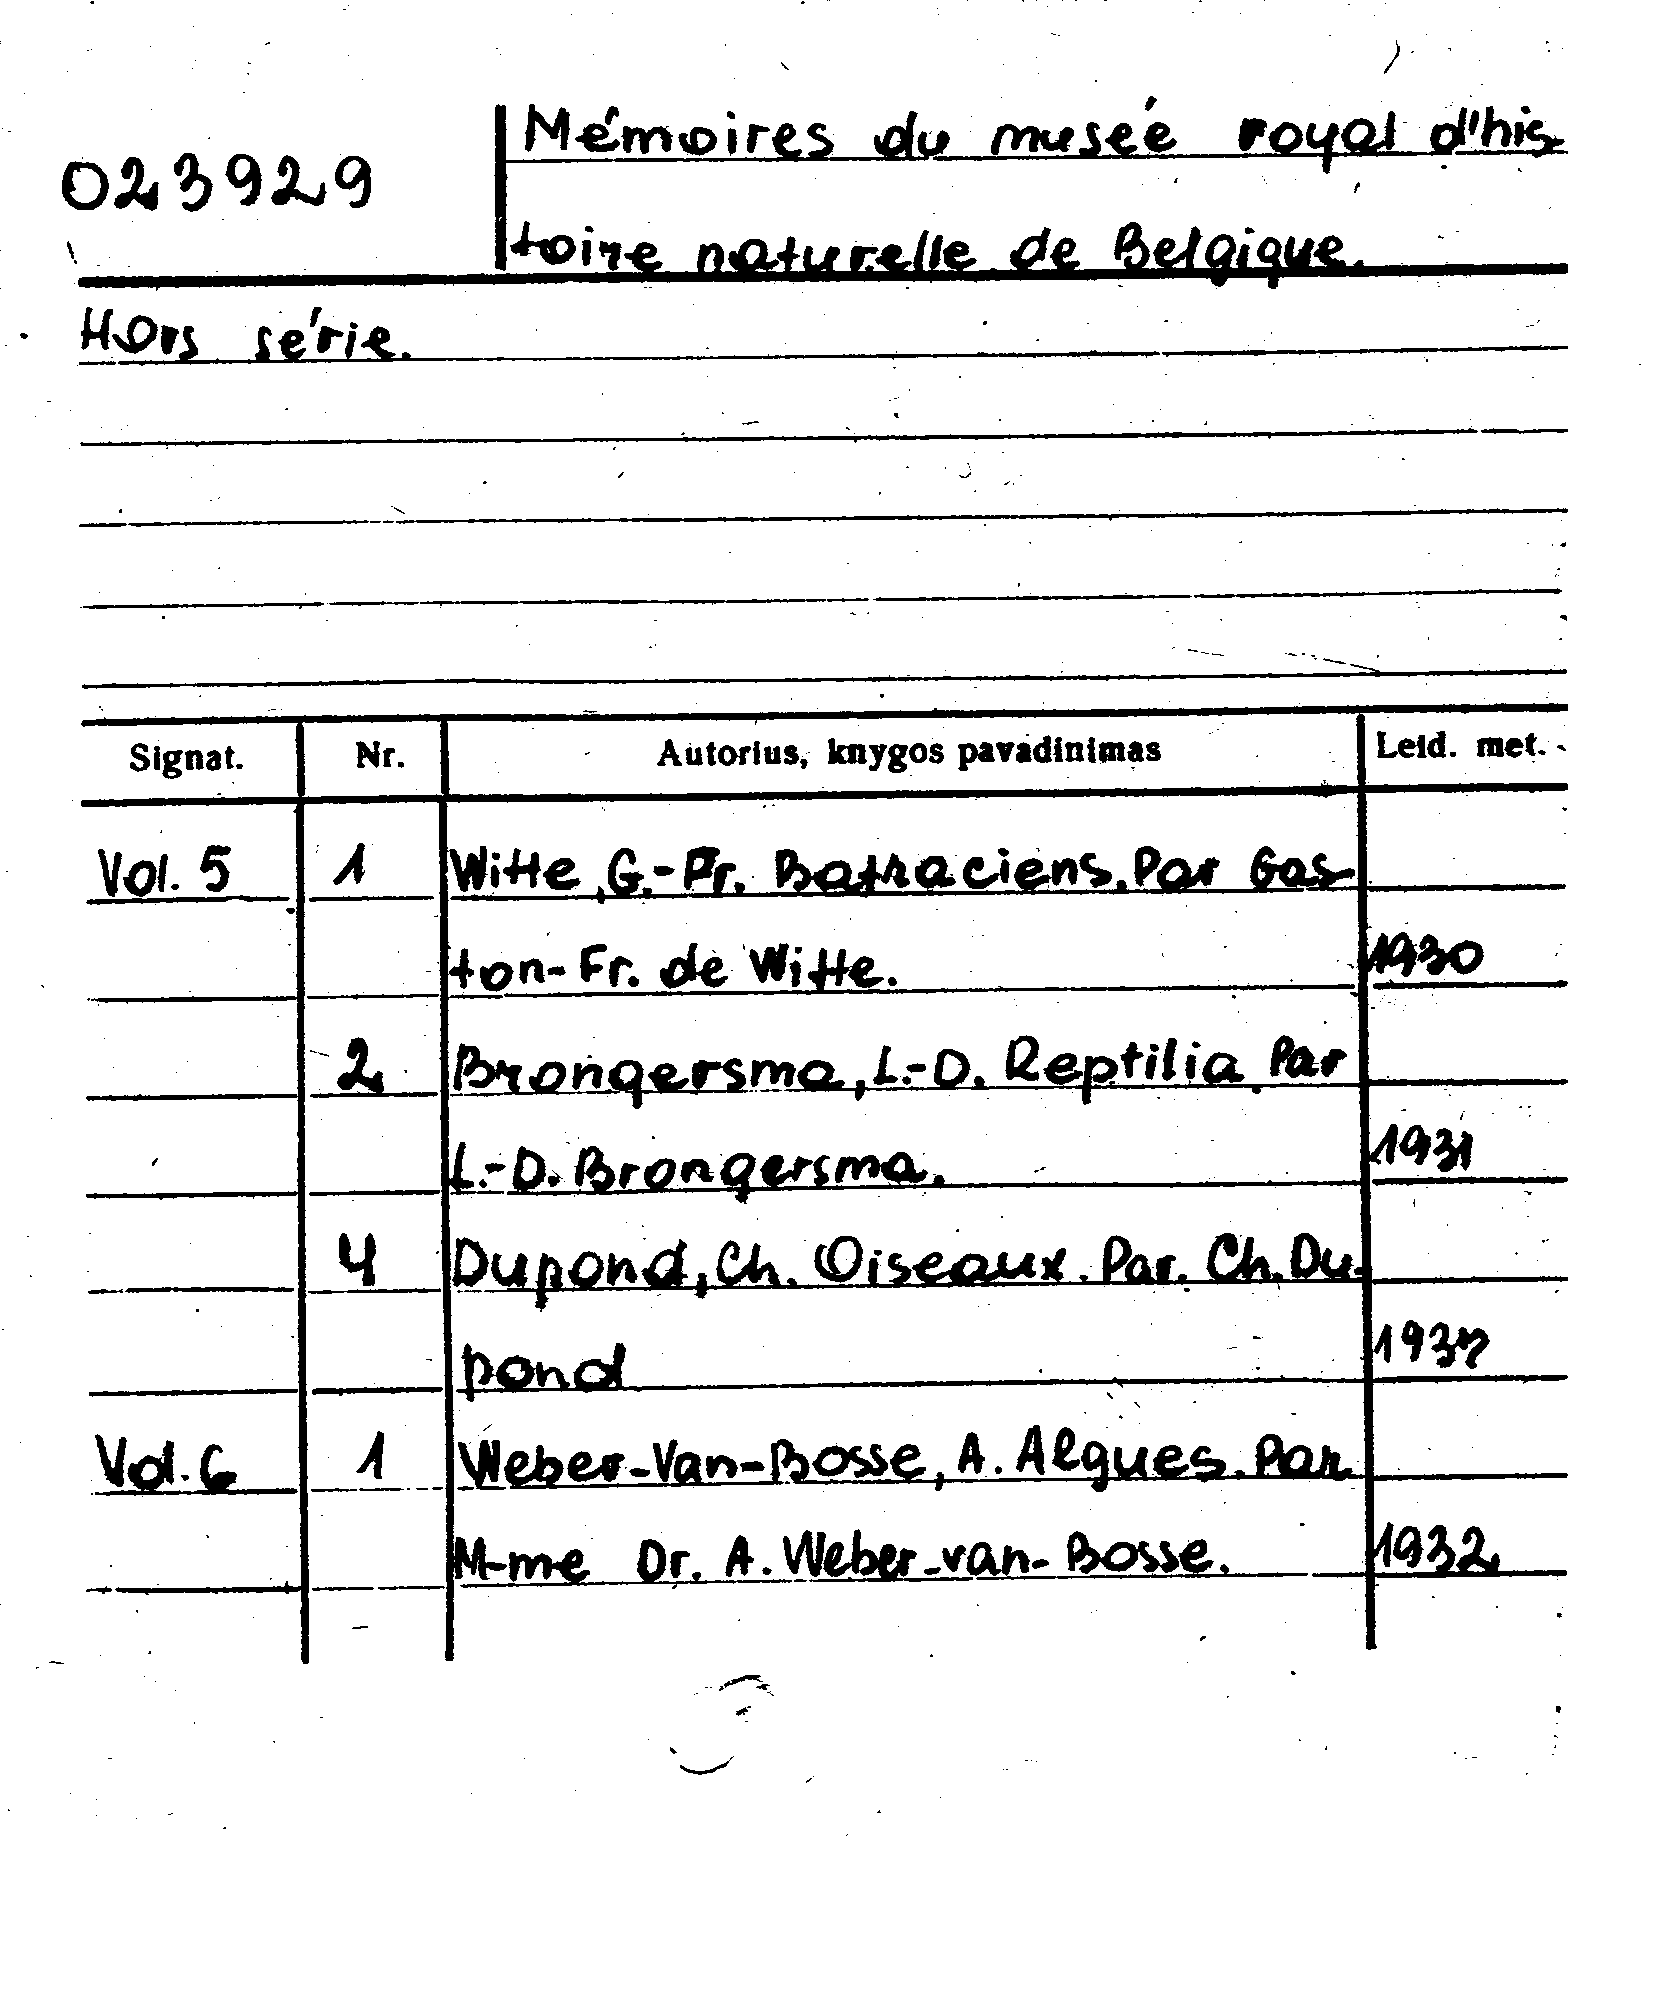 023929
Mémoires du musée royal d'his-
toire naturelle de Belgique.
Hors série.
Signat. Nr. Autorius, knygos pavadinimas Leid. met.
Vol. 5 1 Witte, G.-Fr. Batraciens. Par Gas-
ton-Fr. de Witte. 1930
2 Brongersma, L.-D. Reptilia. Par
L.-D. Brongersma. 1931
4 Dupond, Ch. Oiseaux. Par. Ch. Du-
pond 1937
Vol. 6 1 Weber-Van-Bosse, A. Algues. Par
M-me Dr. A. Weber-van-Bosse. 1932